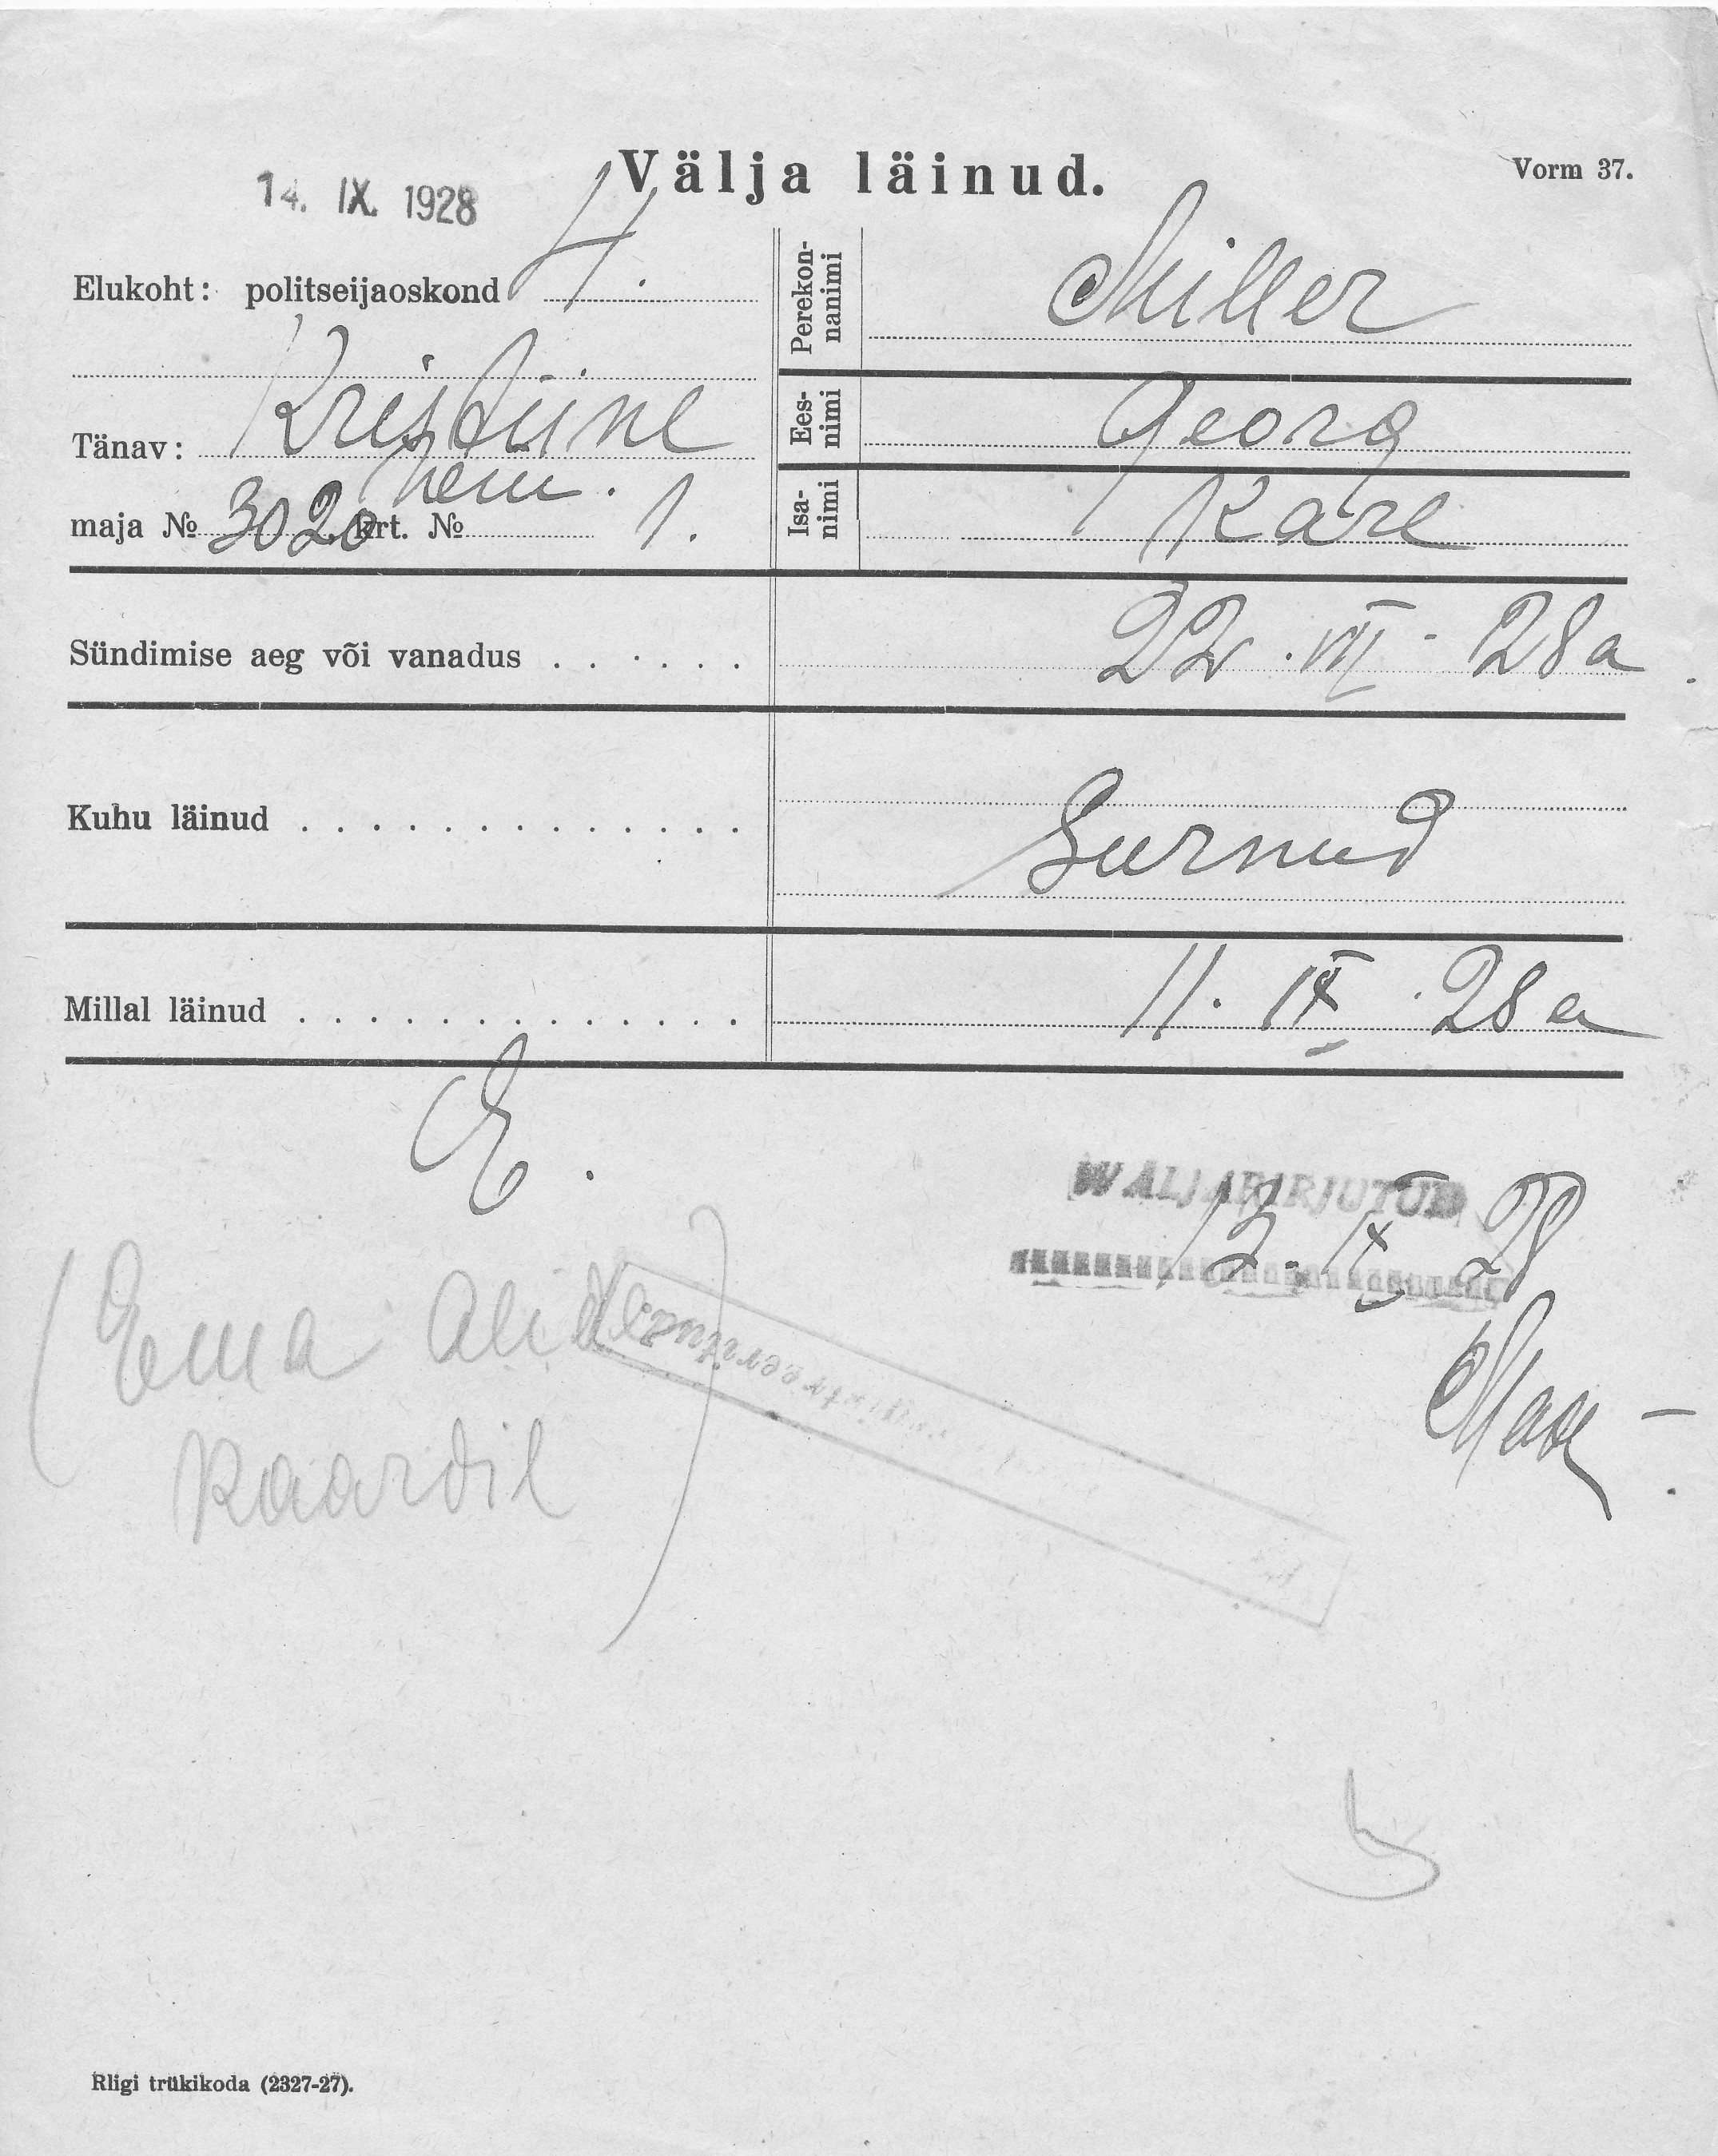 Välja läinud.
Vorm 37.
14. IX. 1928
Elukoht: politseijaoskond 4.
Tänav: Kristiine
hein.
maja № 3020 krt. № 1.
Perekon-
nanimi
Miller
Ees-
nimi
Georg
Isa-
nimi
Karl
Sündimise aeg või vanadus . . . . . .
22. VII. 28 a
Kuhu läinud . . . . . . . . . . . . .
Surnud
Millal läinud . . . . . . . . . . . . .
11. IX. 28 a
E.
WÄLJAKIRJUTUD
13. IX 28
(Ema Alide
kaardil)
Riigi trükikoda (2327-27).